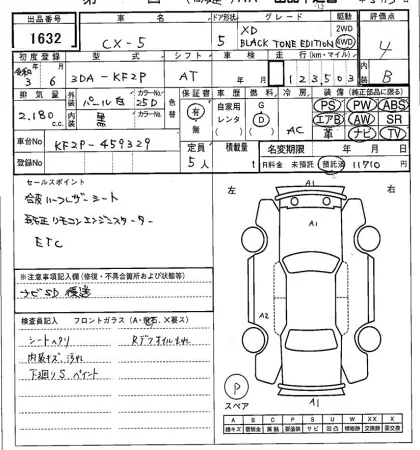 出品番号 車名 ドア形状 グレード 駆動 評価点
1632 CX-5 5 XD BLACK TONE EDITION 2WD 4WD 4
初度登録 型式 シフト 車検 走行(km・マイル) 内装
令和 3 6 3DA-KF2P AT 年 月 123,503 B
排気量 外装 パール白 カラーNo. 25D 色替 保証書 車歴 燃料 冷房 装備(純正部品に限る)
2,180 c.c. 内装 黒 カラーNo. 有 無 自家用 レンタ G D AC PS PW ABS
エアB AW SR
革 ナビ TV
車台No KF2P-459329 定員 5人 積載量 t 名変期限 年 月 日
登録No R料金 未預託 預託済 11710 円
セールスポイント
合皮ハーフレザーシート
純正リモコンエンジンスターター
ETC
左 右
A1
A1
A2
A1
※注意事項記入欄(修復・不具合箇所および状態等)
ナビSD後送
検査員記入 フロントガラス(A・飛石、X要ス)
シートヘタリ Rデフオイルもれ
内装キズ、汚れ
下廻りS ペイント
P
スペア
A B C P S U W X XX
線キズ 要板金 腐触 要塗装 サビ 凹凸 補修跡 交換跡 要交換